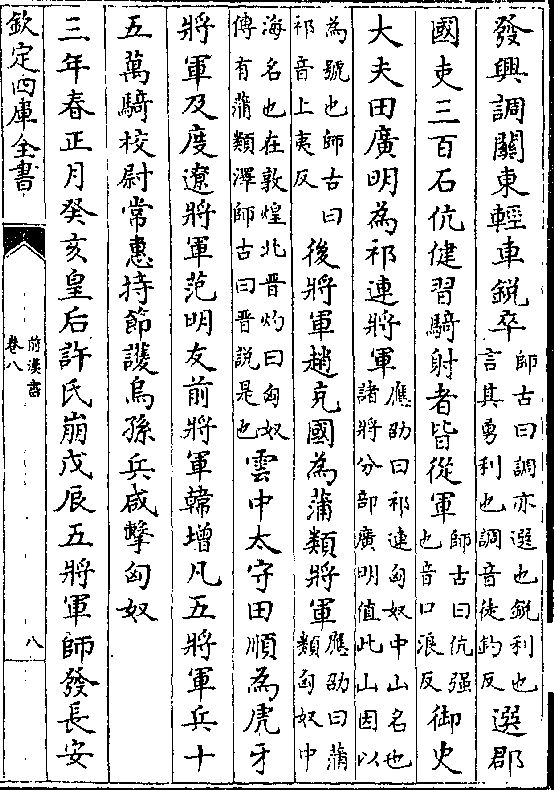 發興調關東輕車銳卒師古曰調亦選也銳利也言其勇利也調音徒釣反選郡
國吏三百石伉健習騎射者皆從軍師古曰伉强也音口浪反御史
大夫田廣明為祁連將軍應劭曰祁連匈奴中山名也諸將分部廣明值此山因以
為號也師古曰祁音上夷反後將軍趙充國為蒲類將軍應劭曰蒲類匈奴中
海名也在敦煌北晉灼曰匈奴傳有蒲類澤師古曰晉說是也雲中太守田順為虎牙
將軍及度遼將軍范明友前將軍韓增凡五將軍兵十
五萬騎校尉常惠持節護烏孫兵咸擊匈奴
三年春正月癸亥皇后許氏崩戊辰五將軍師發長安
欽定四庫全書
前漢書
卷八
八